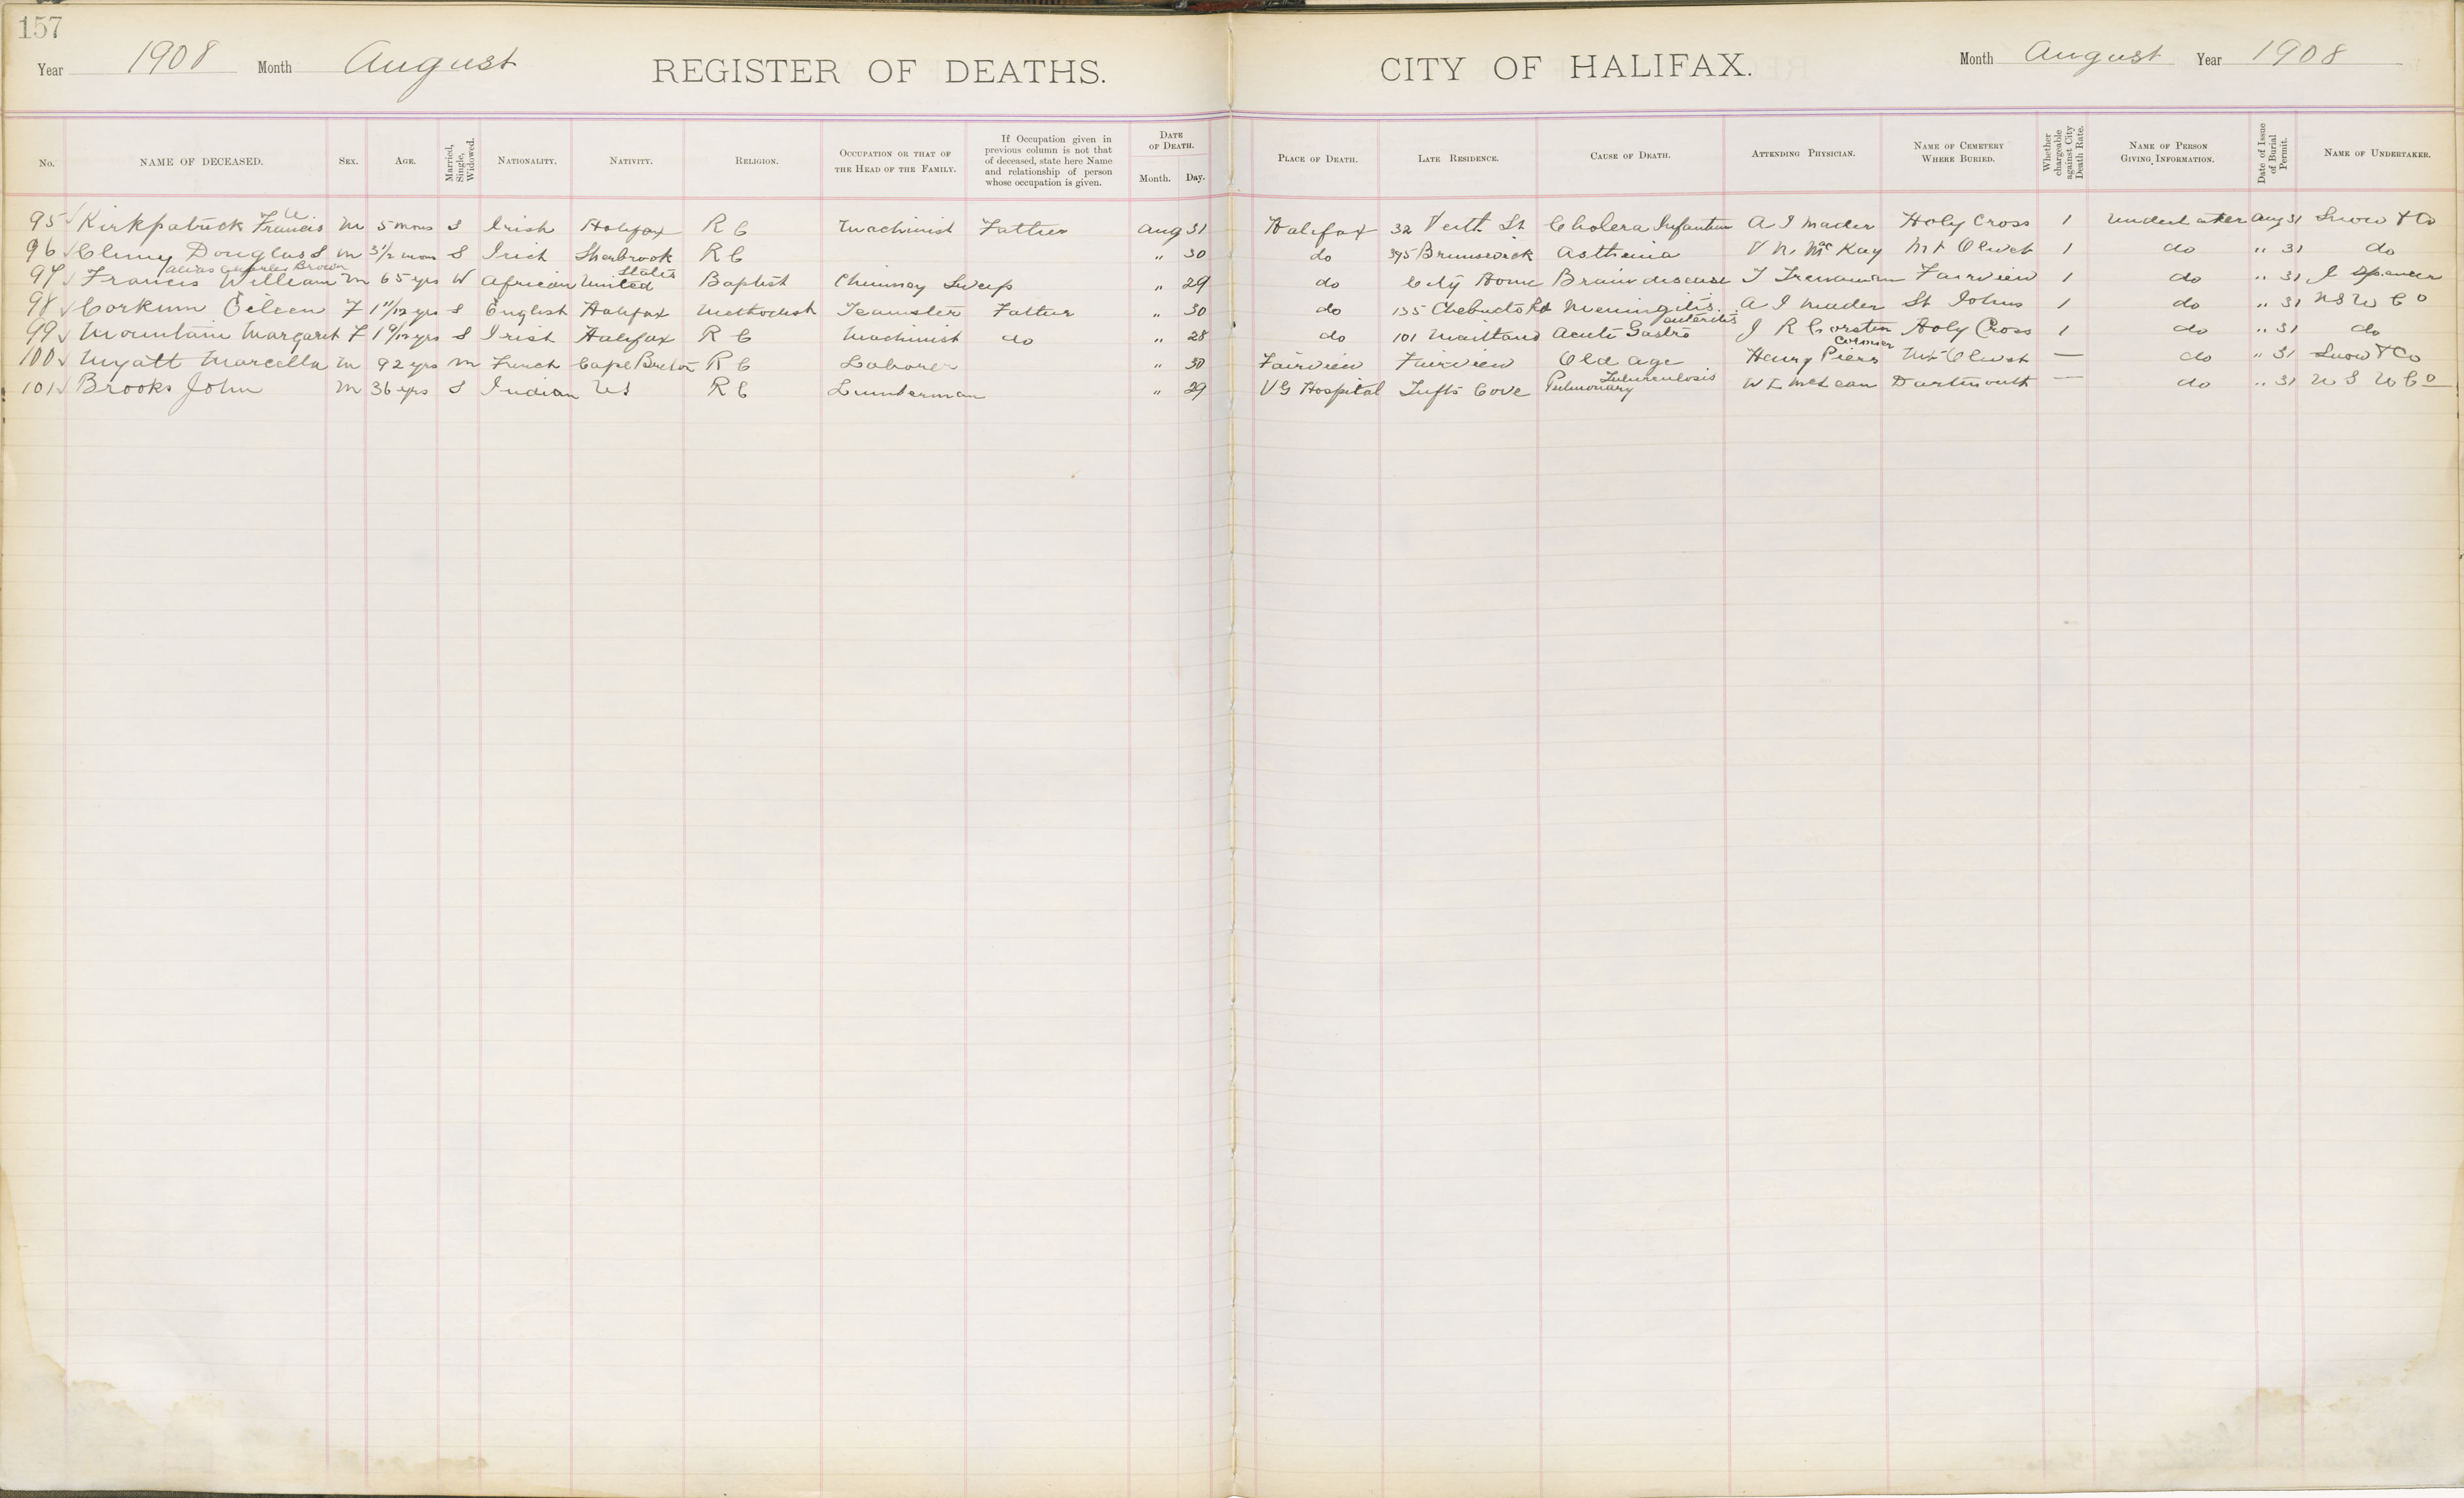 157
Year 1908 Month August REGISTER OF DEATHS. CITY OF HALIFAX. Month August Year 1908
No. NAME OF DECEASED. SEX. AGE. Married, Single, Widowed. NATIONALITY. NATIVITY. RELIGION. OCCUPATION OR THAT OF THE HEAD OF THE FAMILY. If Occupation given in previous column is not that of deceased, state here Name and relationship of person whose occupation is given. DATE OF DEATH. Month. Day. PLACE OF DEATH. LATE RESIDENCE. CAUSE OF DEATH. ATTENDING PHYSICIAN. NAME OF CEMETERY WHERE BURIED. Whether chargeable against City Death Rate. NAME OF PERSON GIVING INFORMATION. Date of Issue of Burial Permit. NAME OF UNDERTAKER.
95 Kirkpatrick Francis W M 5 mos S Irish Halifax R C Machinist Father Aug 31 Halifax 32 Veith St Cholera Infantum A I Mader Holy Cross 1 Undertaker Aug 31 Snow & Co
96 Douglas S M 3 1/2 mos S Irish Sherbrook R C " 30 do 395 Brunswick Asthenia V N McKay Mt Olivet 1 do " 31 do
97 Francis William alias Charles Brown M 65 yrs W African United States Baptist Chimney Sweep " 29 do City Home Brain disease T Trenaman Fairview 1 do " 31 J Spencer
98 Corkum Eileen F 1 11/12 yrs S English Halifax Methodist Teamster Father " 30 do 135 Chebucto Rd Meningitis A I Mader St Johns 1 do " 31 N S U Co
99 Mountain Margaret F 1 9/12 yrs S Irish Halifax R C Machinist do " 28 do 101 Maitland Acute Gastro enteritis J R Corston Holy Cross 1 do " 31 do
100 Myatt Marcella M 92 yrs M French Cape Breton R C Laborer " 30 Fairview Fairview Old age Henry Piers Coroner Mt Olivet — do " 31 Snow & Co
101 Brooks John M 36 yrs S Indian US R C Lumberman " 29 V G Hospital Tufts Cove Pulmonary Tuberculosis W L McLean Dartmouth — do " 31 N S U Co